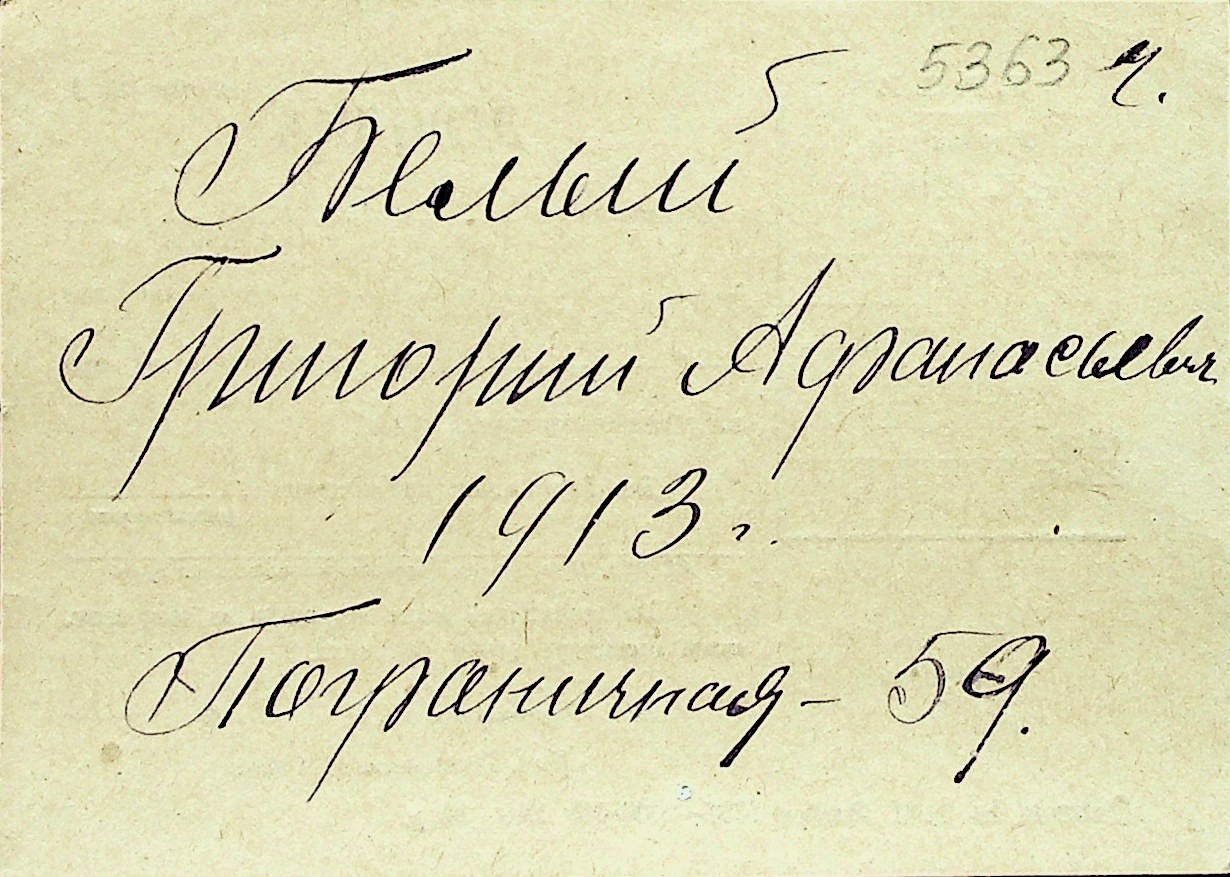 5363 ч.
Белый
Григорий Афанасьевич
1913 г.
Пограничная - 59.